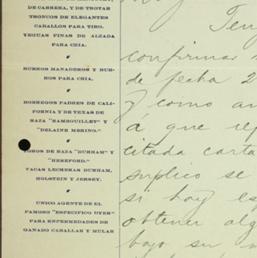 DE CARRERA, Y DE TROTAR
TRONCOS DE ELEGANTES
CABALLOS PARA TIRO.
YEGUAS FINAS DE ALZADA
PARA CRIA.
BUENOS MANADEROS Y BUR-
ROS PARA CRIA.
BORREGOS PADRES DE CALI-
FORNIA Y DE TEXAS DE
RAZA "RAMBOUILLET" Y
"DELAINE MERINO."
TOROS DE RAZA "DURHAM" Y
"HEREFORD."
VACAS LECHERAS DURHAM,
HOLSTEIN Y JERSEY.
UNICO AGENTE DE EL
FAMOSO "ESPECIFICO UYER"
PARA ENFERMEDADES DE
GANADO CABALLAR Y MULAR
Ten
confirmar
de fecha 2
y como an
á que
citada carta
suplico se
si hoy es
obtener alg
bajo su